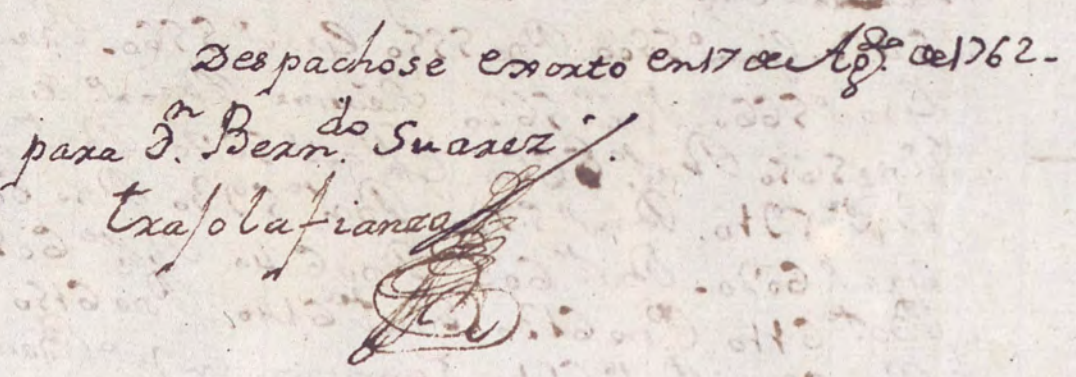 Despachose exorto en 17 de Ag.to de 1762-
para D.n Bern.do Suarez
traso la fianza